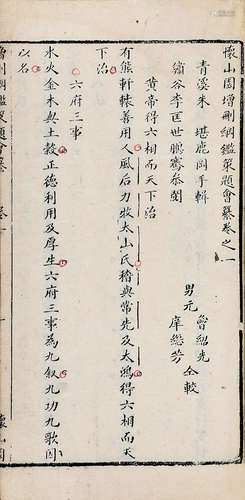 懷山園增刪綱鑑策題會纂卷之一
青溪朱 堪鹿岡手輯
繡谷李匡世鵬齋叅閱
男元 魯紹先
庠繼芳 仝較
黃帝得六相而天下治
有熊軒轅善用人風后力牧太山氏稽與常先及太鴻得六相而天
下治
六府三事
水火金木與土穀正德利用及厚生六府三事為九叙九功九歌因
以名
懷山園